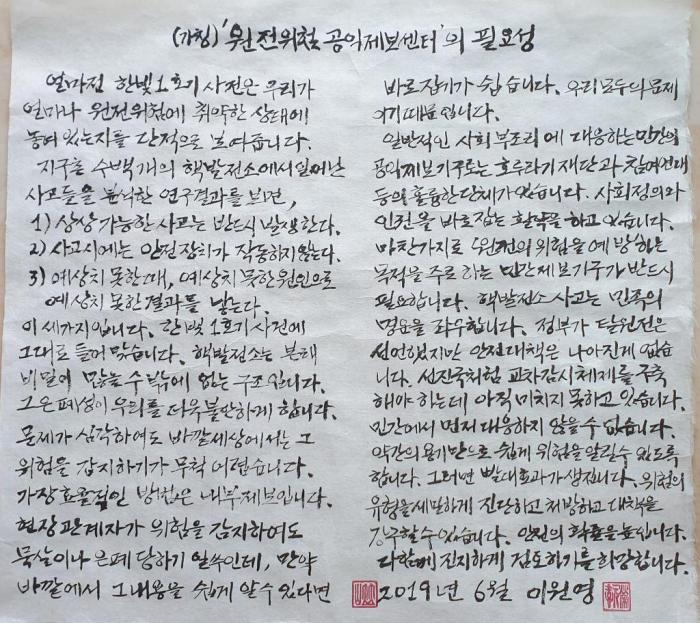 (가칭) '원전위험 공익제보센터'의 필요성
얼마전 한빛1호기 사건은 우리가
얼마나 원전위험에 취약한 상태에
놓여 있는지를 단적으로 보여줍니다.
지구촌 수백개의 핵발전소에서 일어난
사고들을 분석한 연구결과를 보면,
1) 상상 가능한 사고는 반드시 발생한다.
2) 사고시에는 안전장치가 작동하지 않는다.
3) 예상치 못한 때, 예상치 못한 원인으로
예상치 못한 결과를 낳는다.
이 세가지입니다. 한빛 1호기 사건에
그대로 들어 맞습니다. 핵발전소는 본래
비밀이 많을 수 밖에 없는 구조입니다.
그 은폐성이 우리를 더욱 불안하게 합니다.
문제가 심각하여도 바깥세상에서는 그
위험을 감지하기가 무척 어렵습니다.
가장 효율적인 방법은 내부제보입니다.
현장 관계자가 위험을 감지하여도
묵살이나 은폐 당하기 일쑤인데, 만약
바깥에서 그 내용을 쉽게 알 수 있다면
바로잡기가 쉽습니다. 우리 모두의 문제
이기 때문입니다.
일반적인 사회 부조리에 대응하는 민간의
공익제보기구로는 호루라기 재단과 참여연대
등의 훌륭한 단체가 있습니다. 사회정의와
인권을 바로잡는 활약을 하고 있습니다.
마찬가지로 원전의 위험을 예방하는
목적을 주로 하는 민간제보기구가 반드시
필요합니다. 핵발전소 사고는 민족의
명운을 좌우합니다. 정부가 탈원전은
선언했지만 안전대책은 나아진게 없습
니다. 선진국처럼 교차감시체제를 구축
해야 하는데 아직 미치지 못하고 있습니다.
민간에서 먼저 대응하지 않을 수 없습니다.
약간의 용기만으로 쉽게 위험을 알릴수 있도록
합니다. 그러면 빨대효과가 생깁니다. 위험의
유형을 세밀하게 진단하고 처방하고 대책을
강구할 수 있습니다. 안전의 확률을 높입니다.
다함께 진지하게 검토하기를 희망합니다.
2019년 6월 이원영